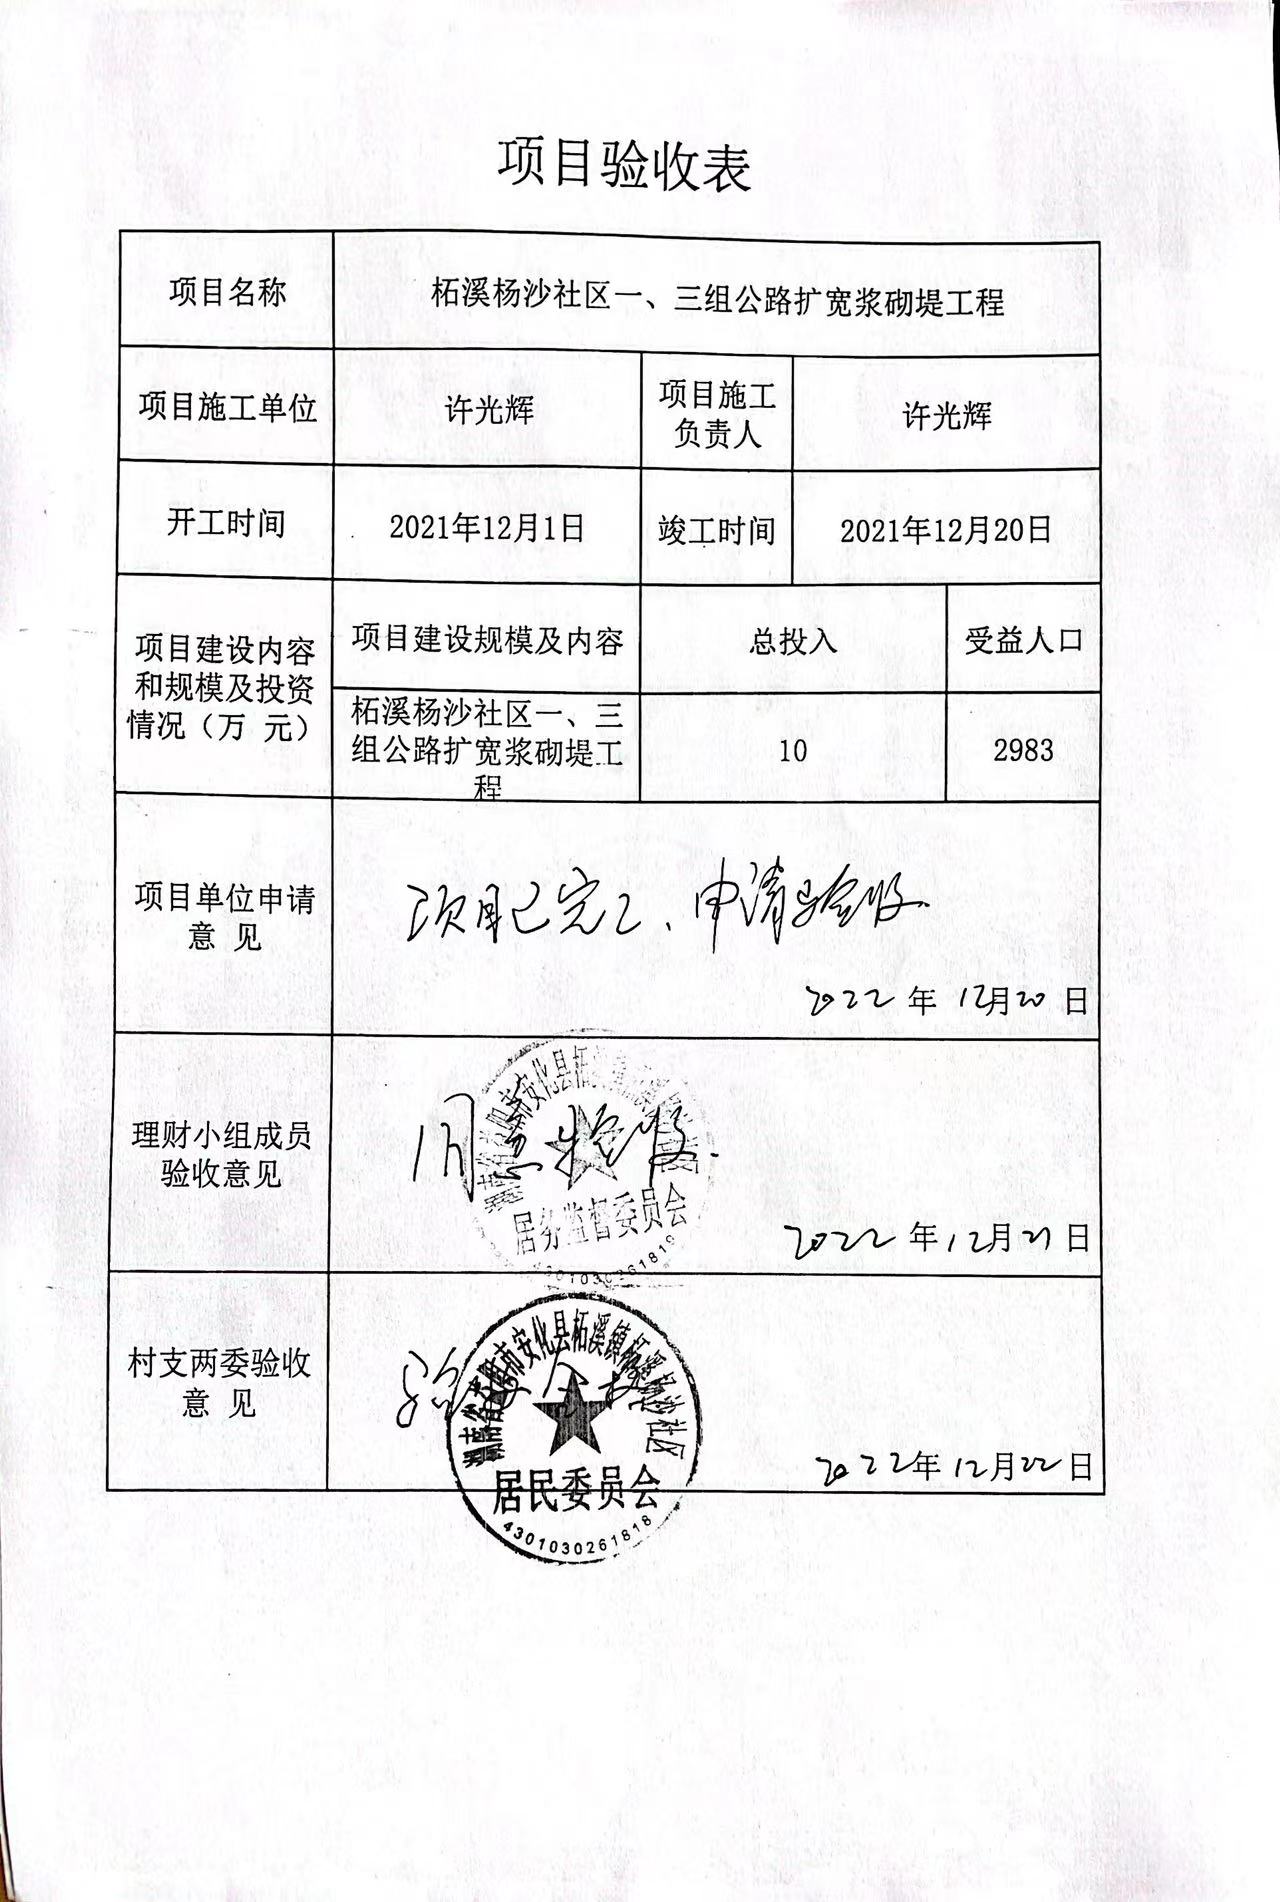 项目验收表
项目名称
柘溪杨沙社区一、三组公路扩宽浆砌堤工程
项目施工单位
许光辉
项目施工
负责人
许光辉
开工时间
2021年12月1日
竣工时间
2021年12月20日
项目建设内容
和规模及投资
情况（万 元）
项目建设规模及内容
总投入
受益人口
柘溪杨沙社区一、三
组公路扩宽浆砌堤工
程
10
2983
项目单位申请
意 见
项目已完工、申请验收.
2022年12月20日
理财小组成员
验收意见
同意验收.
居务监督委员会
4301030261819
2022年12月21日
村支两委验收
意 见
验收合格
湖南省益阳市安化县柘溪镇柘溪杨沙社区
居民委员会
4301030261818
2022年12月22日